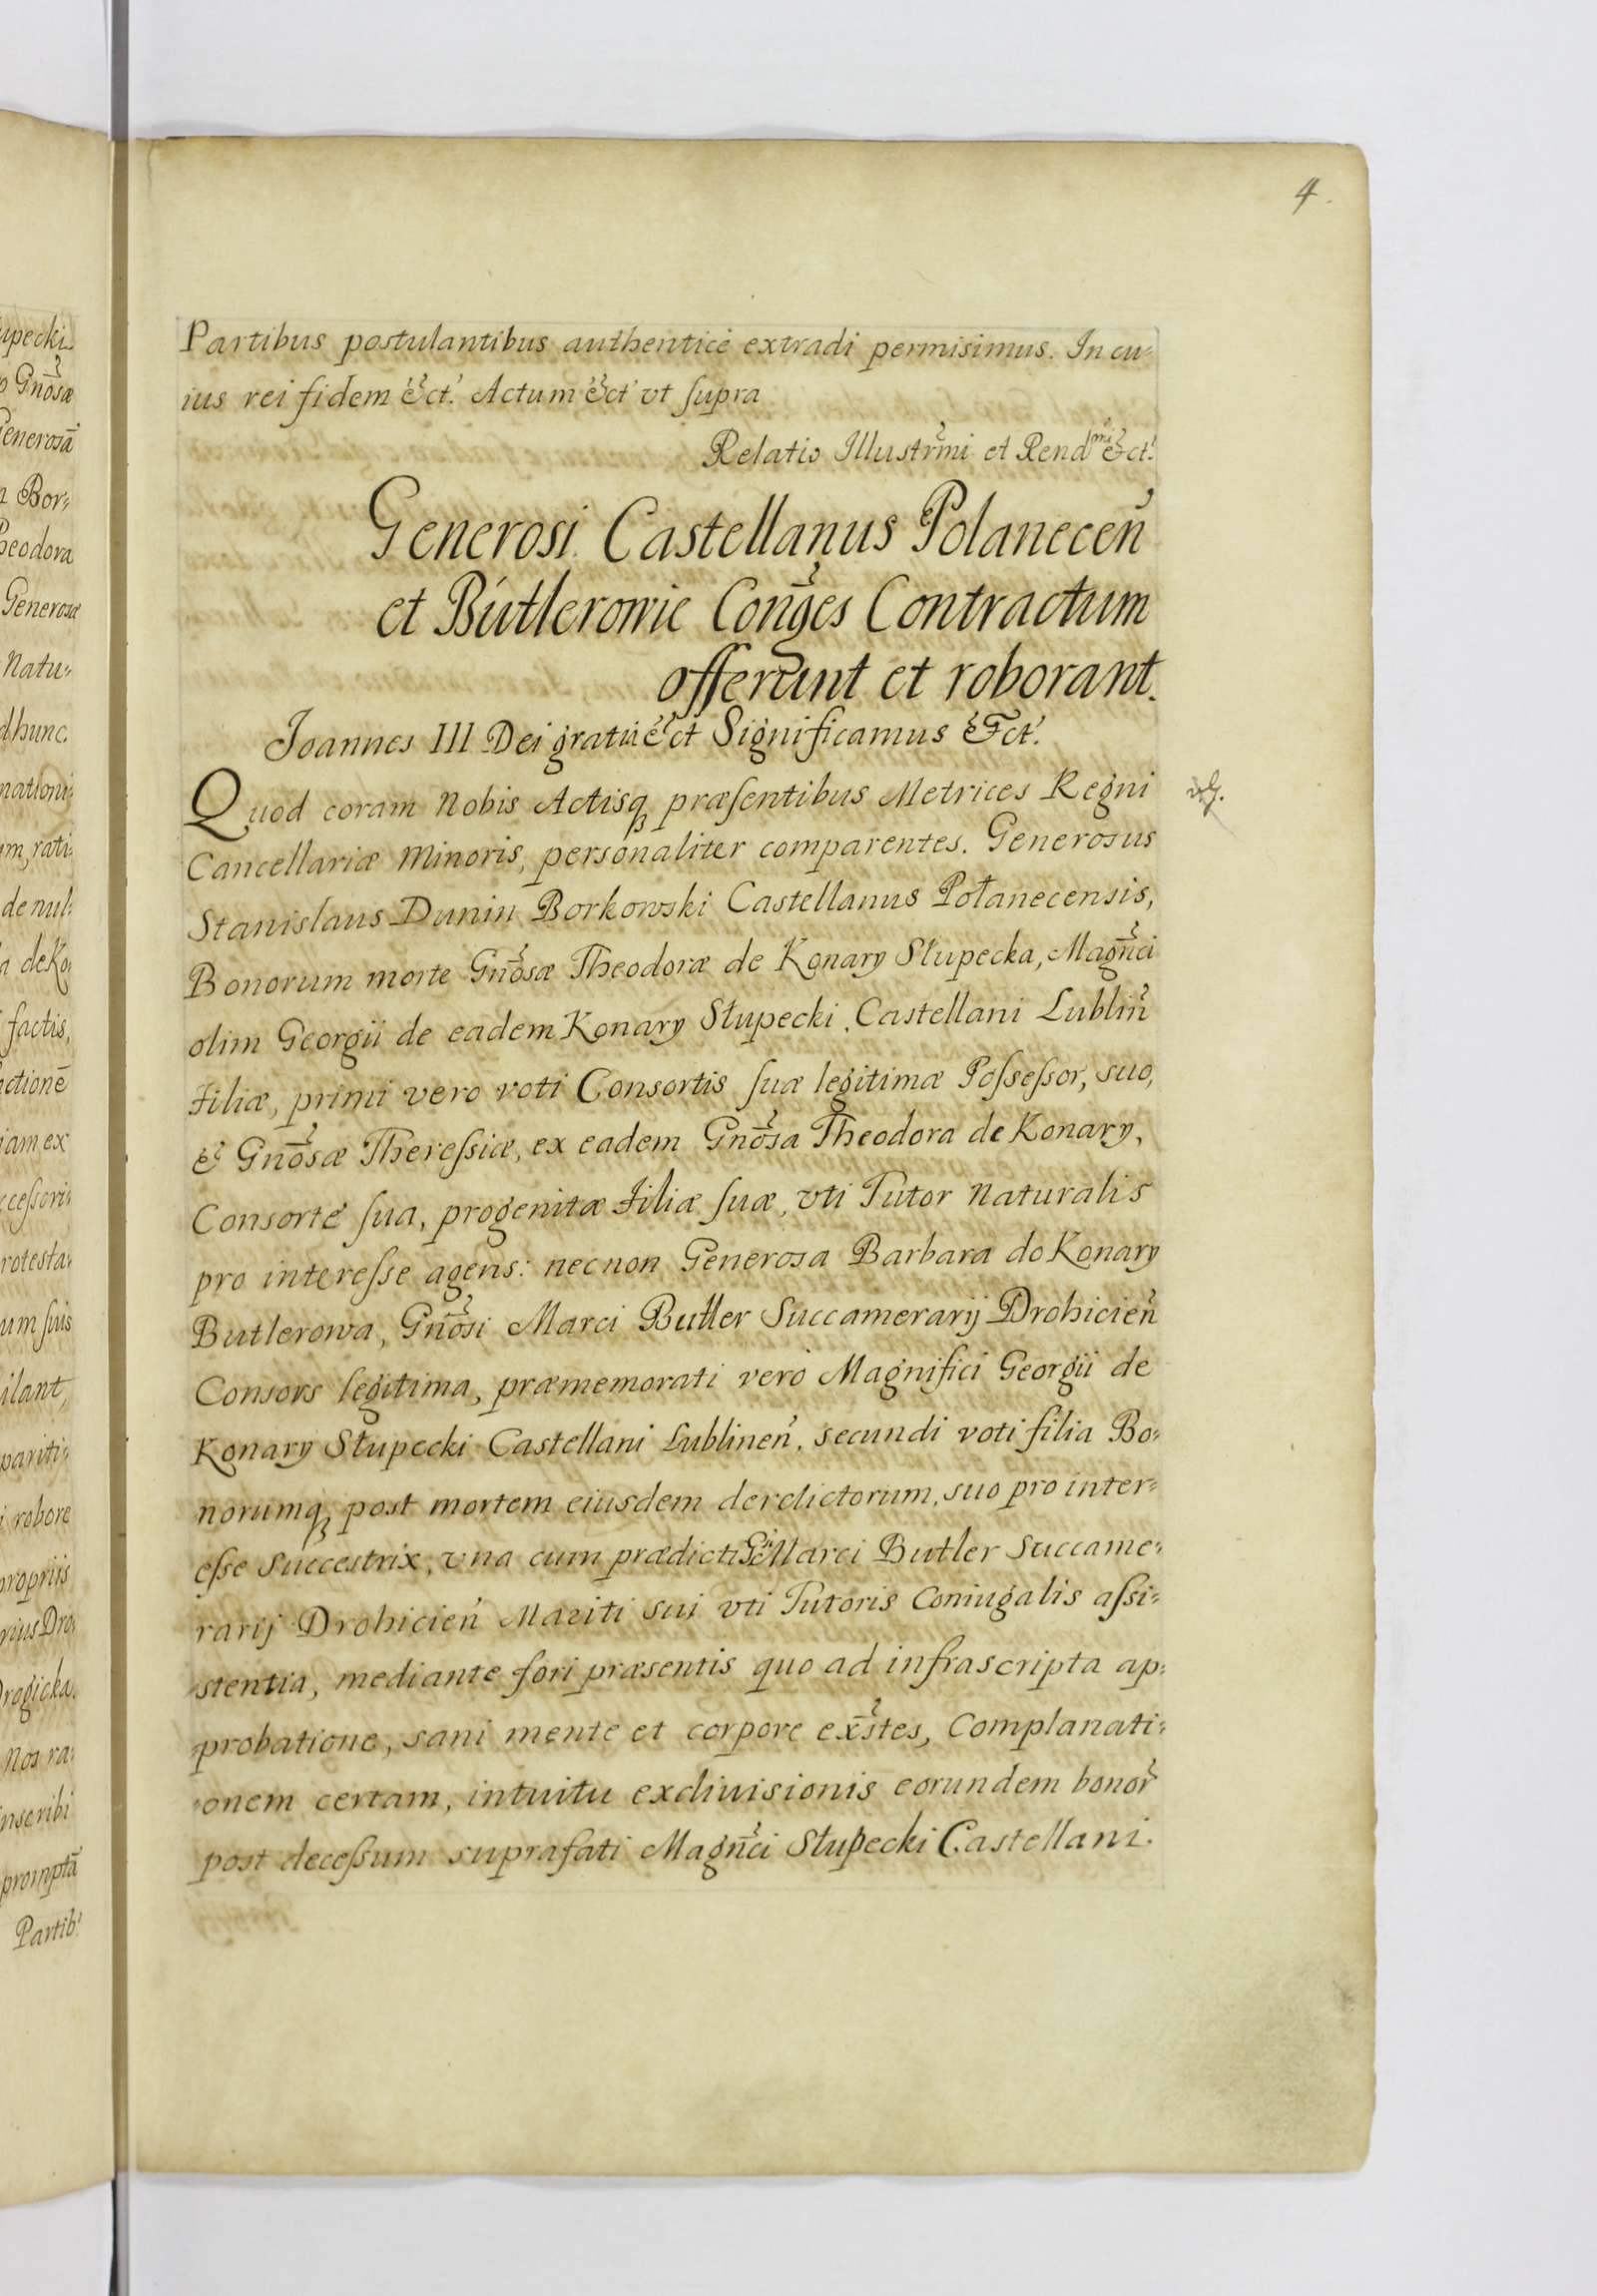 4.
Partibus postulantibus authenticè extradi permisimus. In cu-
ius rei fidem &ct. Actum &ct vt supra
Relatio Illustrmi et Rend^mi &ct.
Generosi Castellanus Polanecen̄
et Butlerowie Con̄ges Contractum
offerunt et roborant.
Joannes III Dei gratia &ct Significamus &ct.
Quod coram Nobis Actisq₃ præsentibus Metrices Regni
Cancellariæ Minoris, personaliter comparentes. Generosus
Stanislaus Dunin Borkowski Castellanus Połanecensis,
Bonorum morte Gn̄osæ Theodoræ de Konary Słupecka, Magn̄ci
olim Georgii de eadem Konary Słupecki, Castellani Lublin̄
Filiæ, primi vero voti Consortis suæ legitimæ Possessor, suo,
& Gn̄osæ Theressiæ, ex eadem Gn̄osa Theodora de Konary,
Consorte sua, progenitæ Filiæ suæ, vti Tutor Naturalis
pro interesse agens: necnon Generosa Barbara do Konary
Butlerowa, Gn̄osi Marci Butler Succamerarij Drohicien̄
Consors legitima, præmemorati verò Magnifici Georgii de
Konary Słupecki Castellani Lublinen̄, secundi voti filia Bo-
norumq₃ post mortem eiusdem derelictorum, suo pro inter-
esse succestrix, vna cum prædicti Gi Marci Butler Succame-
rarij Drohicien̄ Mariti sui vti Tutoris Coniugalis assi-
stentia, mediante fori præsentis quo ad infrascripta ap-
probatione, sani mente et corpore ex̄stes, Complanati-
onem certam, intuitu exdiuisionis eorundem bonor̄
post decessum suprafati Magn̄ci Słupecki Castellani.